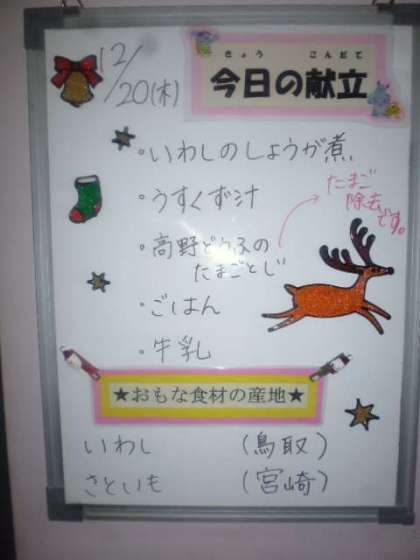 12/20(木)
きょう こんだて
今日の献立
・いわしのしょうが煮
・うすくず汁
・高野どうふの
たまごとじ
たまご
除去
です。
・ごはん
・牛乳
★おもな食材の産地★
いわし (鳥取)
さといも (宮崎)